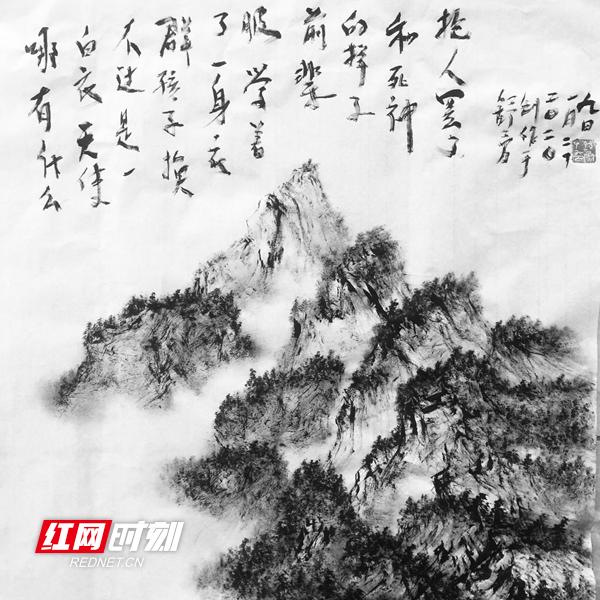 哪有什么
白衣天使
不过是一
群孩子换
了一身衣
服学着
前辈
的样子
和死神
抢人罢了
舒勇
创作于
二〇二〇
一月二十
九日
红网时刻
REDNET.CN